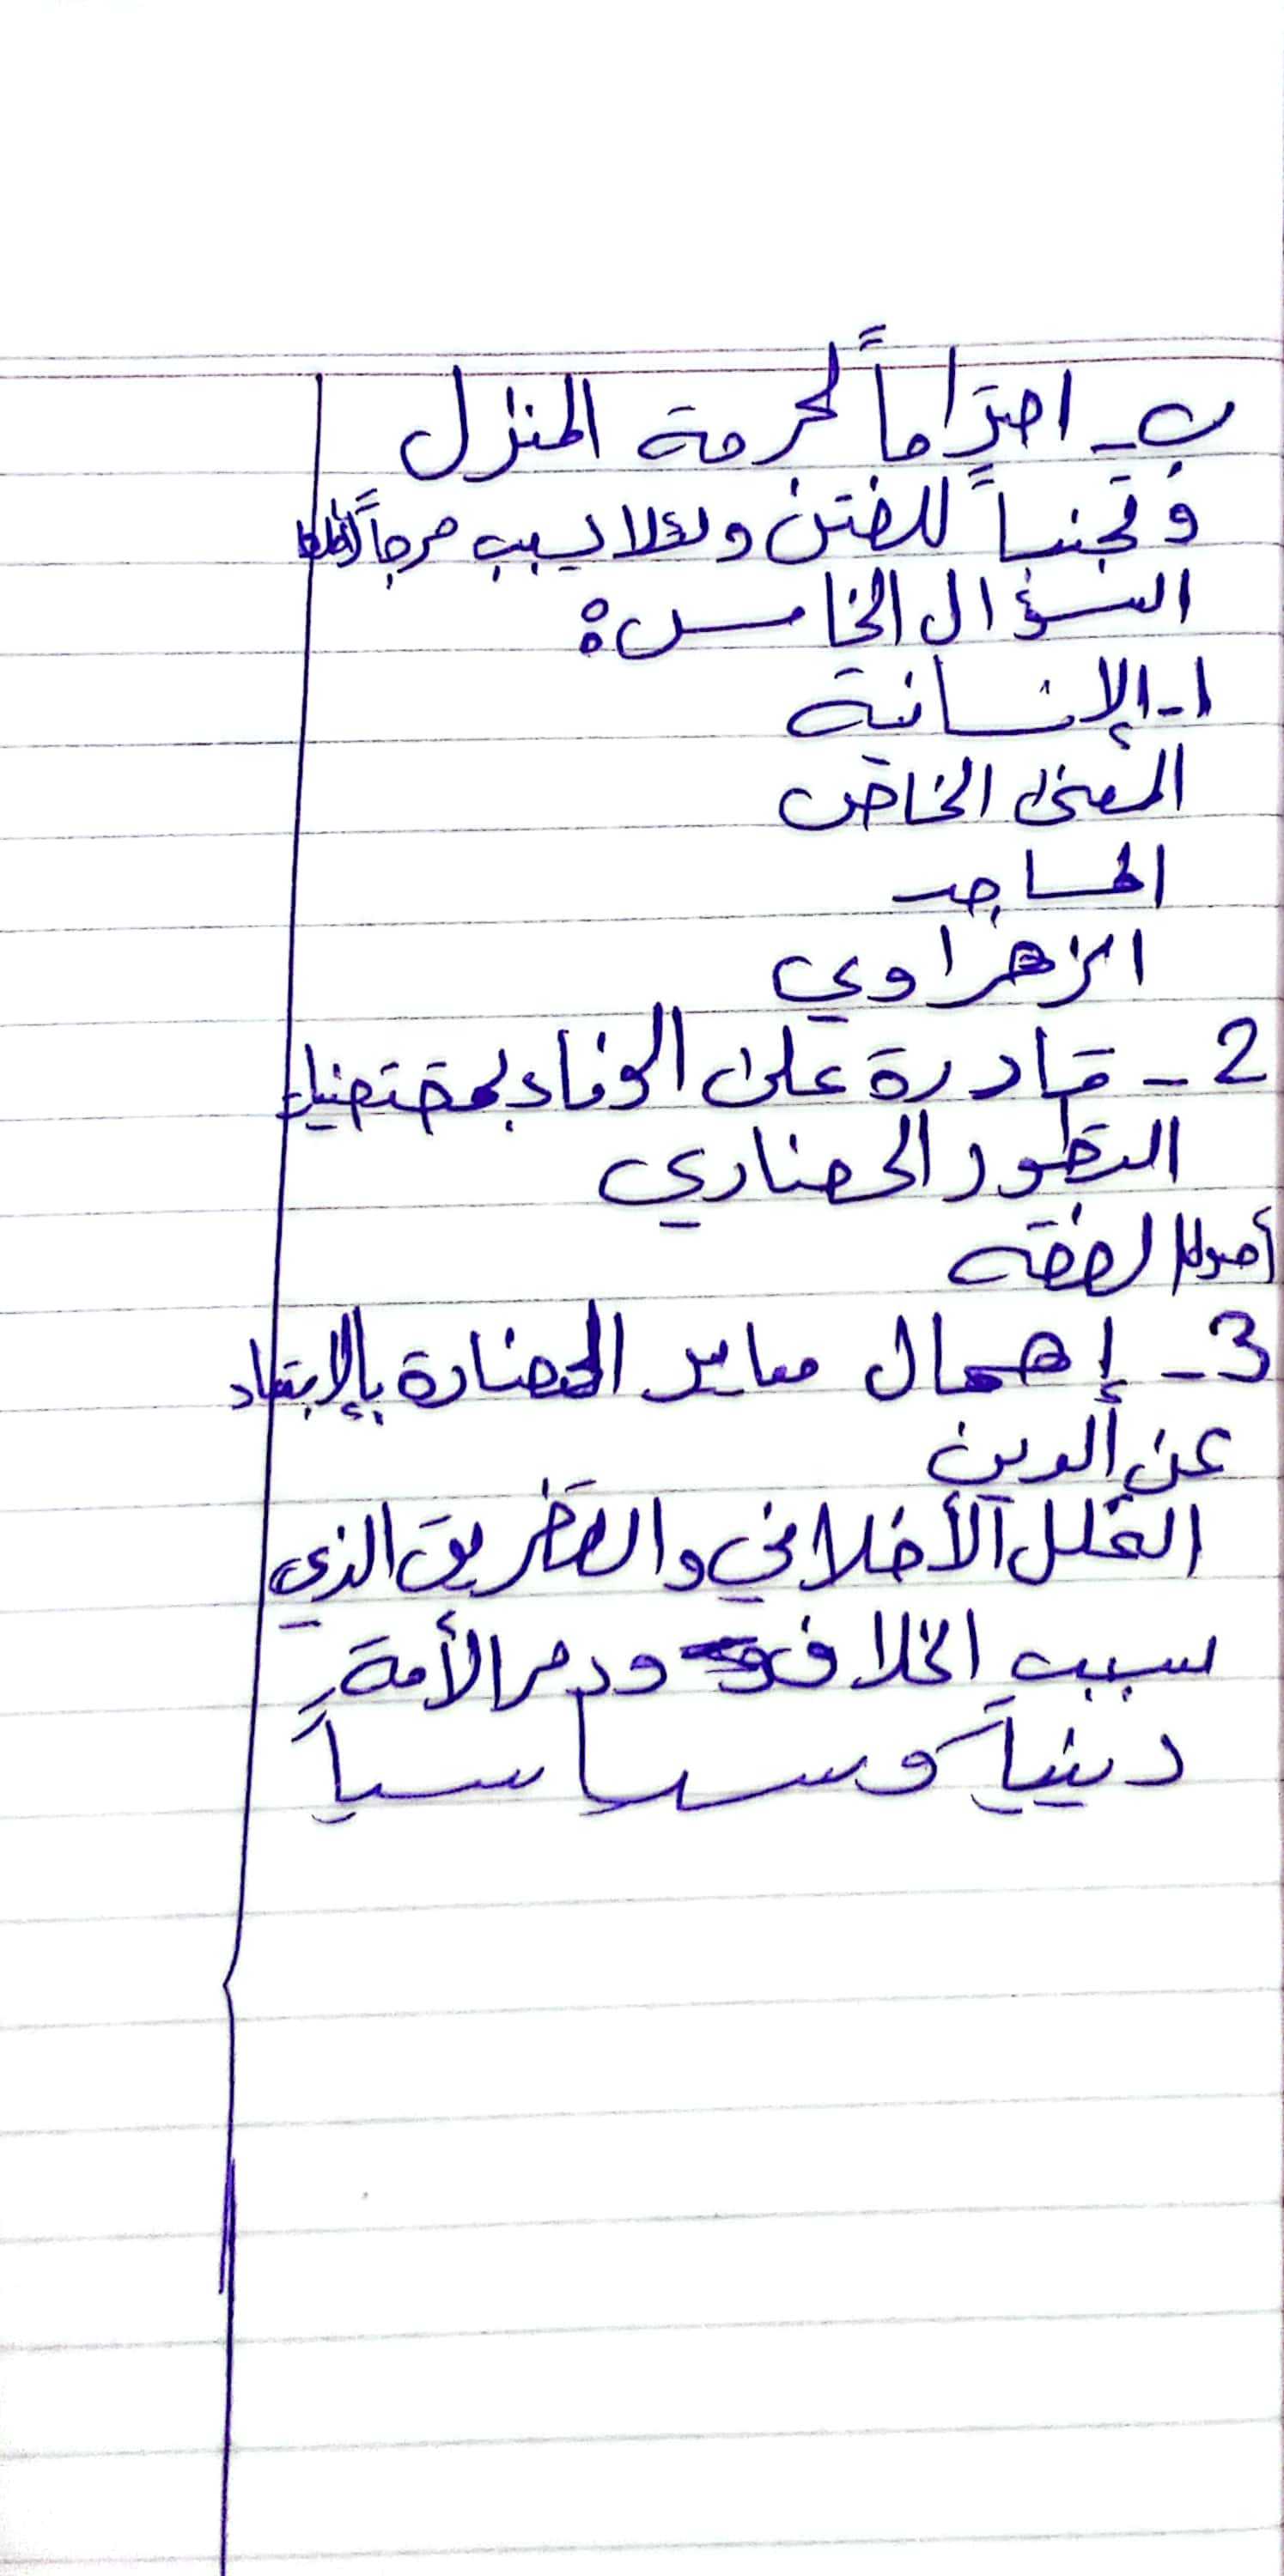 ب - احتراماً لحرمة المنزل
وتجنباً للفتن ولئلا يسبب حرجاً
السؤال الخامس:
1- الإنسانية
المعنى الخاص
المساجد
الزهراوي
2 - قادرة على الوفاء بمقتضيات
التطور الحضاري
أصول الفقه
3 - إهمال معايير الحضارة بالإبتعاد
عن الدين
الخلل الأخلاقي والتفريق الذي
سبب الخلاف ودمر الأمة
دينياً وسياسياً